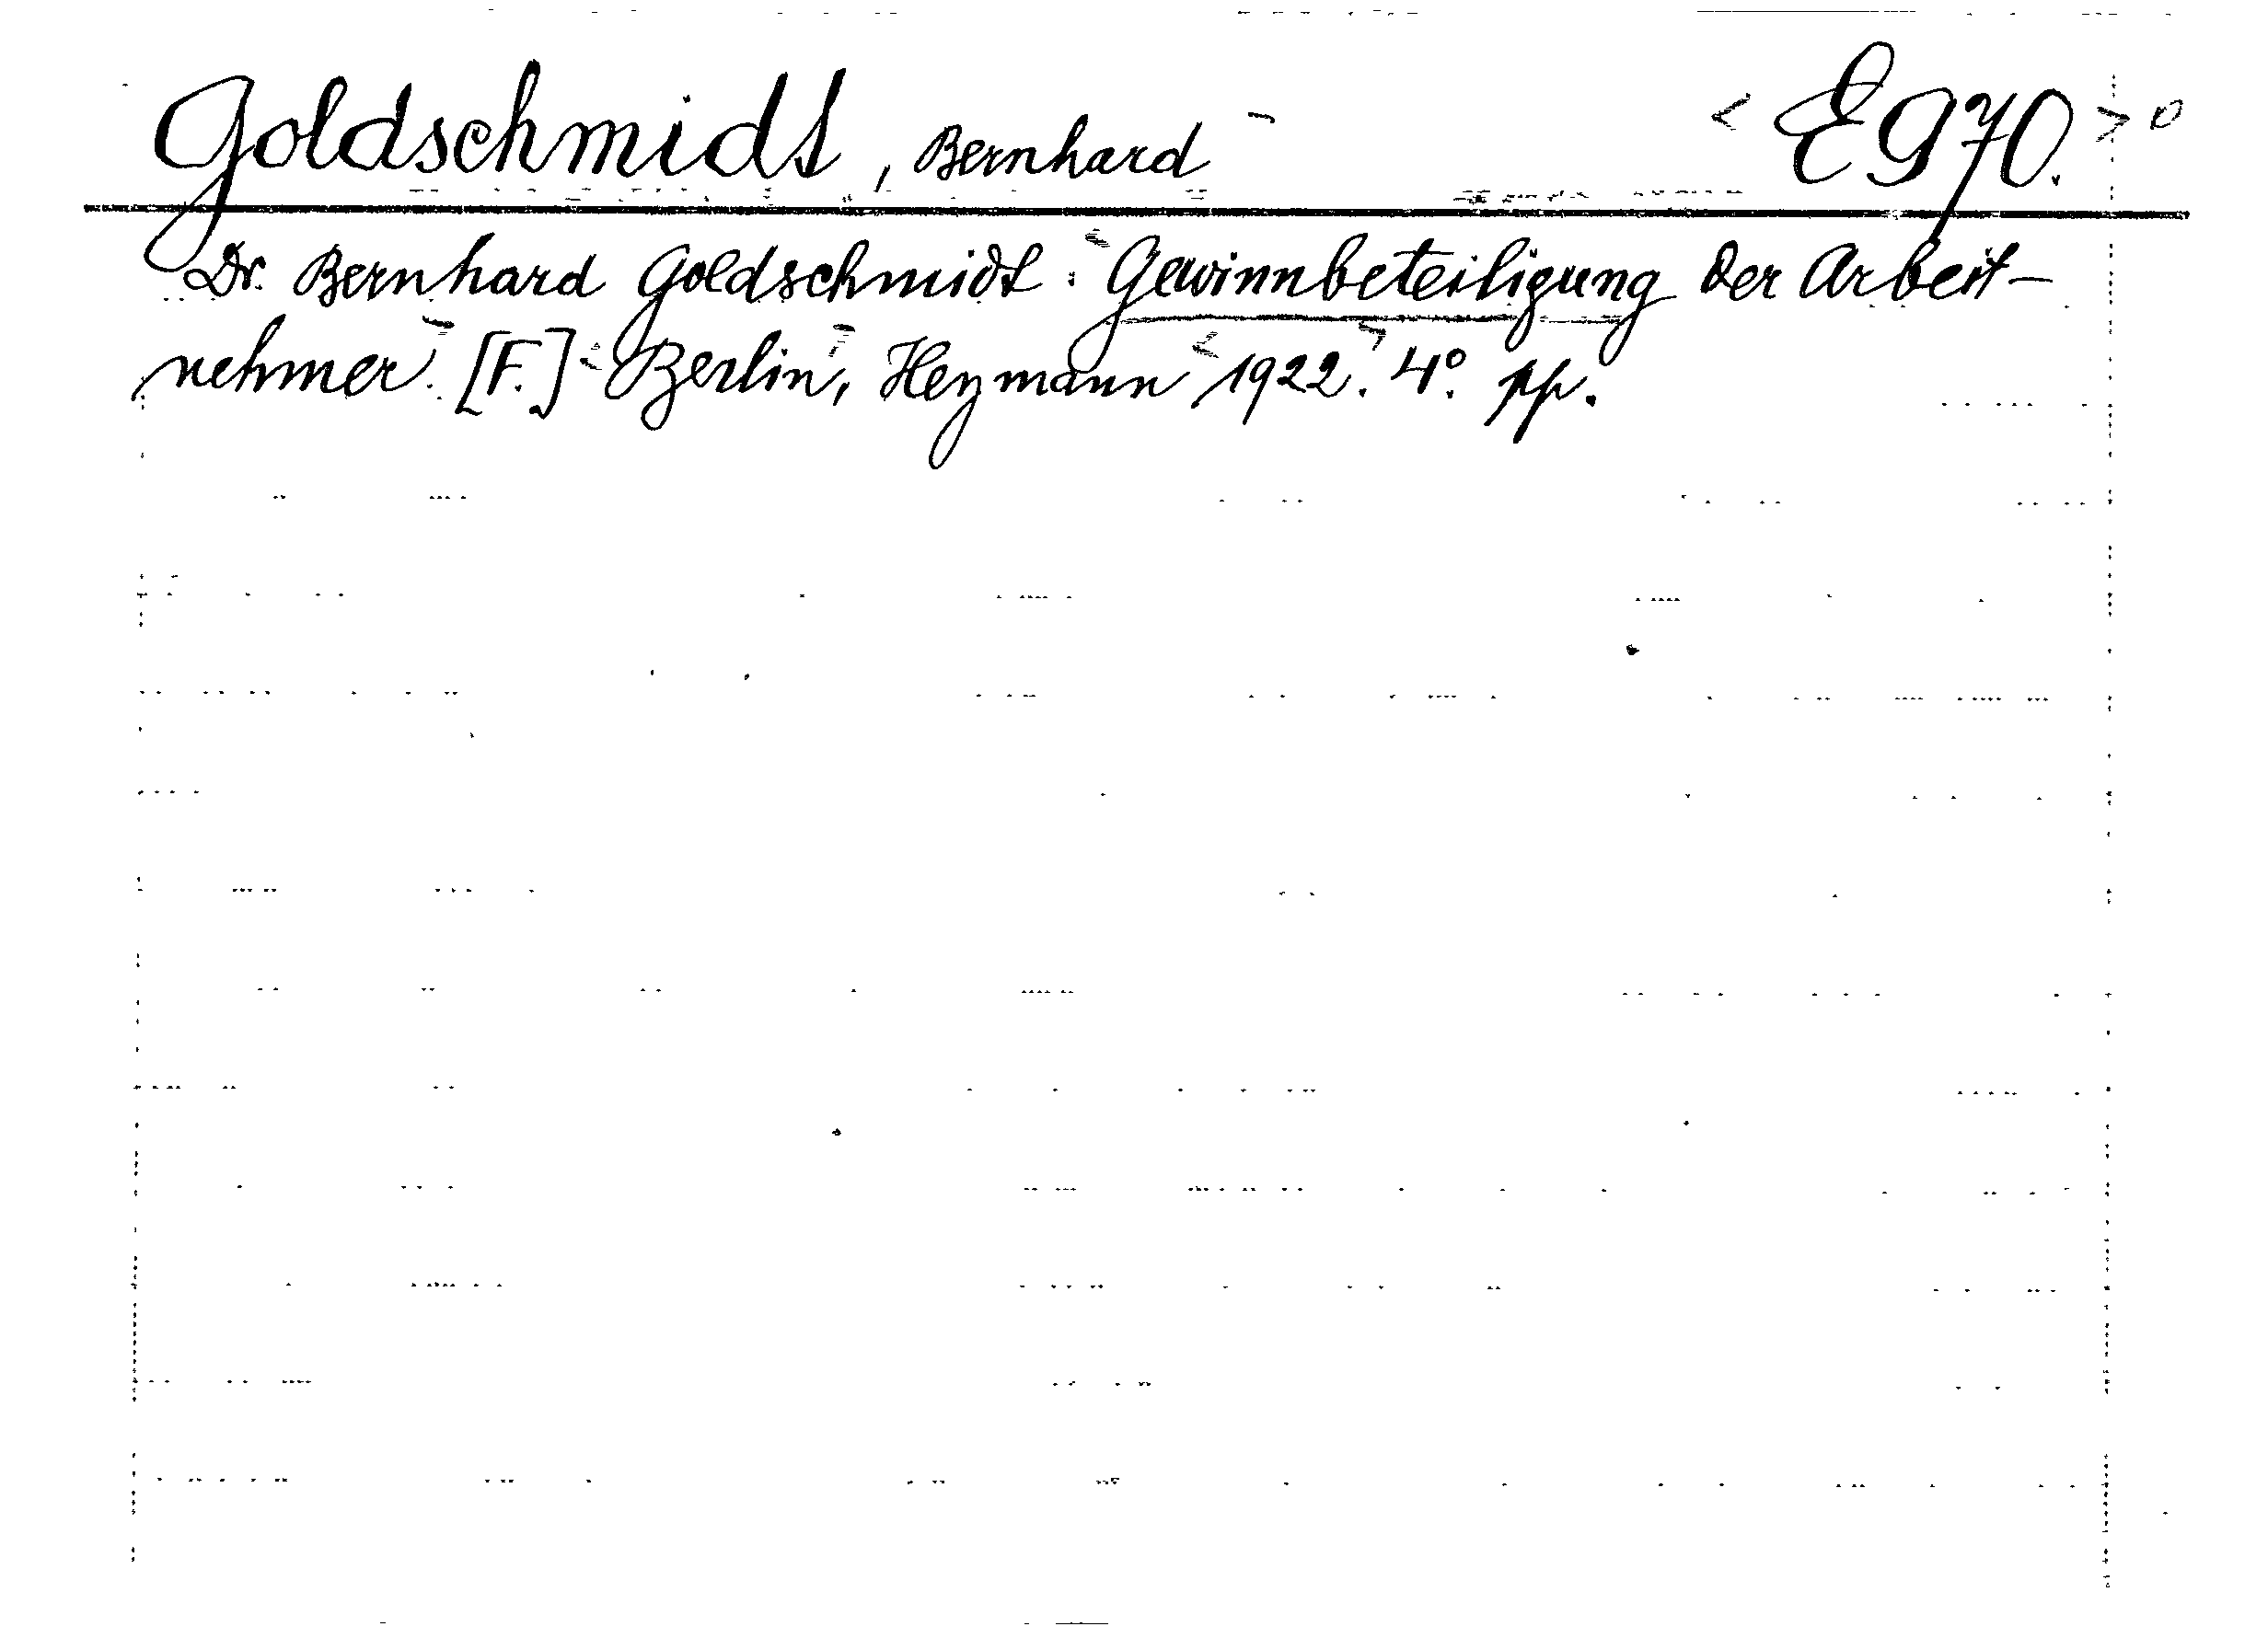 Goldschmidt, Bernhard < E 970. > 0
Dr. Bernhard Goldschmidt: Gewinnbeteiligung der Arbeit-
nehmer. [F.] Berlin, Heymann 1922. 4°. pp.